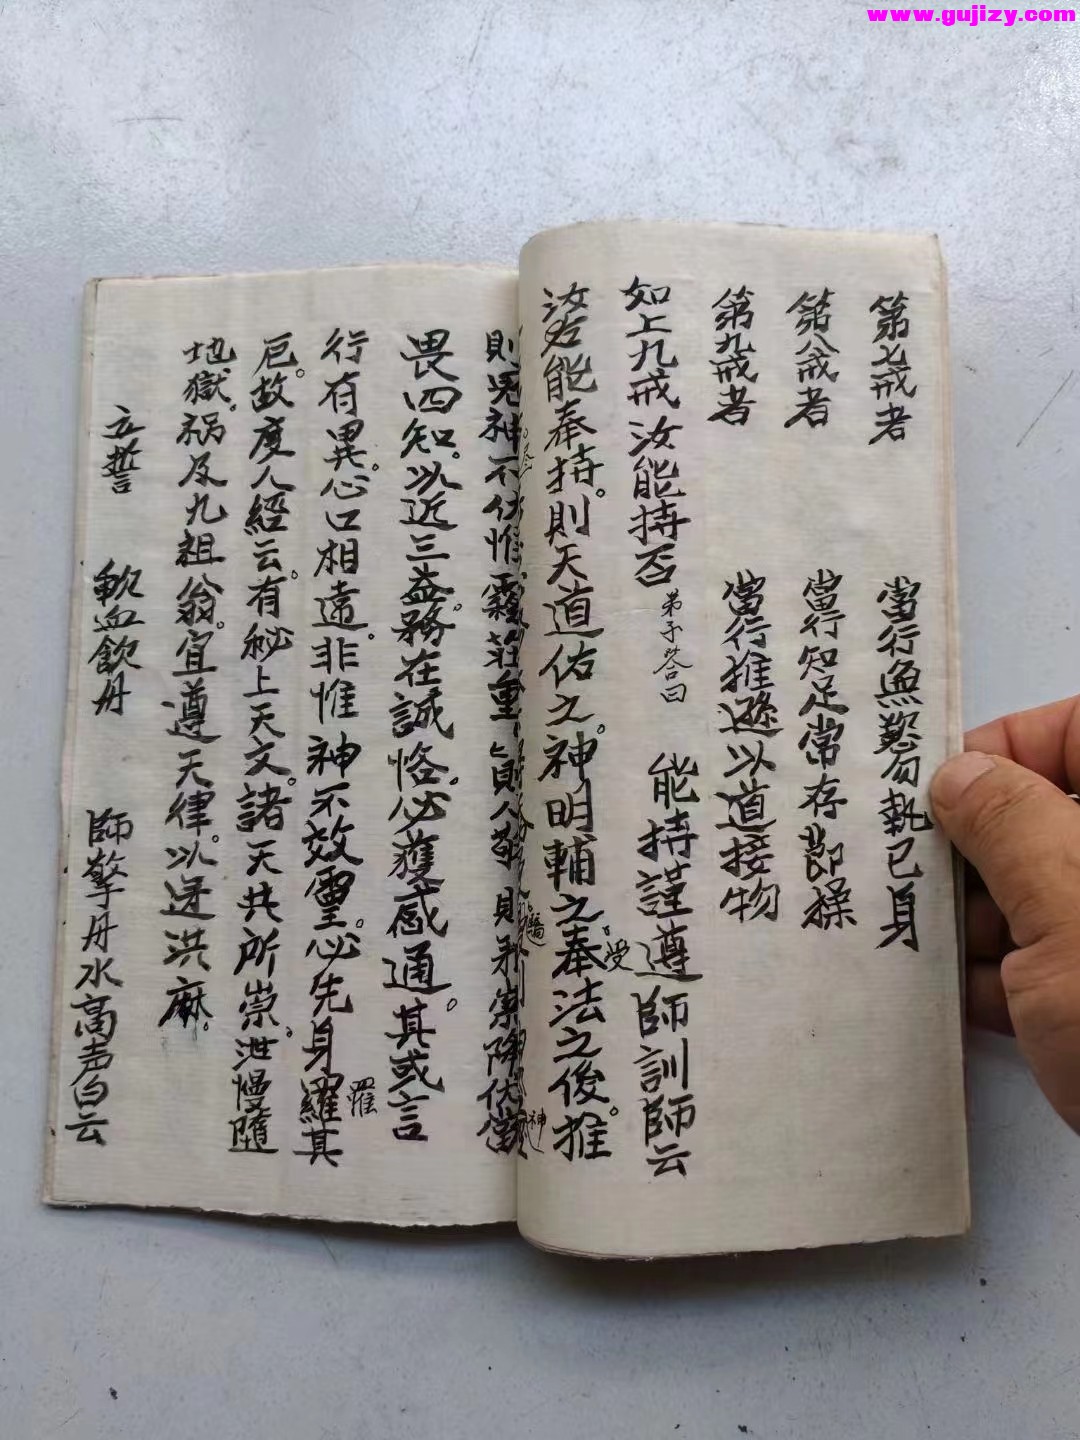 www.gujizy.com
第七戒者　當行無懃勿執己身
第八戒者　當行知足常存節操
第九戒者　當行推遜以道接物
如上九戒汝能持否　弟子答曰　能持謹遵師訓師云
汝若能奉持。則天道佑之。神明輔之。奉受法之後。推
則鬼神不伏惟　莊重　則　崇降伏
畏四知。以近三益。務在誠恪。必獲感通。其或言
行有異。心口相違。非惟神不效靈。必先身羅罹其
厄。故度人經云。有秘上天文。諸天共所崇。泄慢墮
地獄。禍及九祖翁。宜遵天律。以迓洪庥。
立誓　歃血飲丹　師擎丹水高声白云